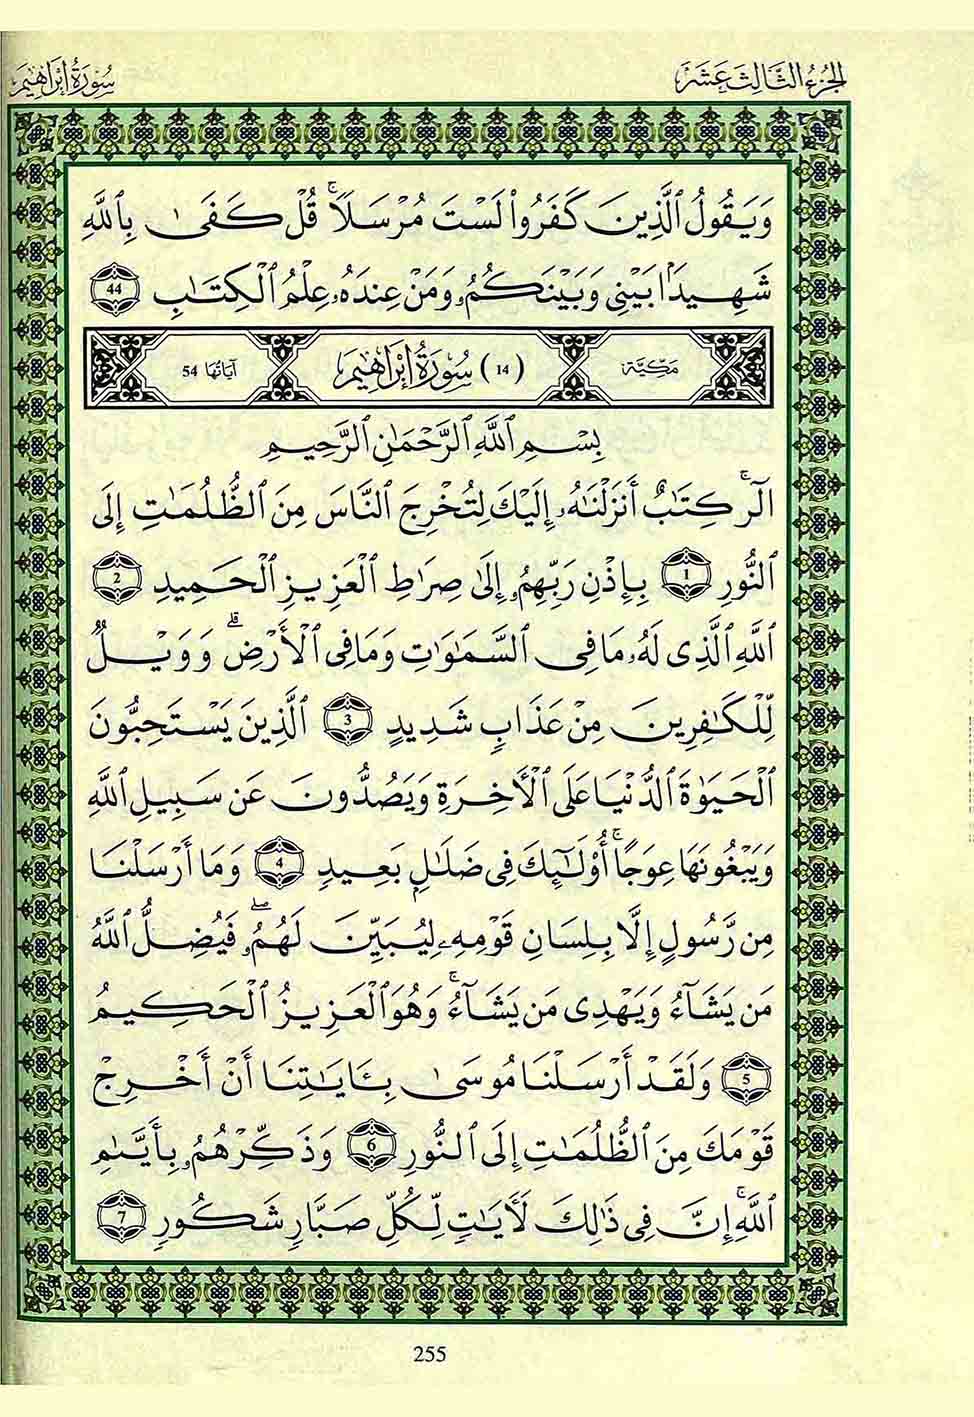 الجزء الثالث عشر
سورة إبراهيم
وَيَقُولُ ٱلَّذِينَ كَفَرُواْ لَسْتَ مُرْسَلًاۚ قُلْ كَفَىٰ بِٱللَّهِ
شَهِيدَۢا بَيْنِي وَبَيْنَكُمُۥ وَمَنْ عِندَهُۥ عِلْمُ ٱلْكِتَٰبِ 44
مكية
(14) سورة إبراهيم
آياتها 54
بِسْمِ ٱللَّهِ ٱلرَّحْمَٰنِ ٱلرَّحِيمِ
الٓرۚ كِتَٰبٌ أَنزَلْنَٰهُۥ إِلَيْكَ لِتُخْرِجَ ٱلنَّاسَ مِنَ ٱلظُّلُمَٰتِ إِلَى
ٱلنُّورِ 1 بِإِذْنِ رَبِّهِمُۥ إِلَىٰ صِرَٰطِ ٱلْعَزِيزِ ٱلْحَمِيدِ 2
ٱللَّهِ ٱلَّذِي لَهُۥ مَا فِي ٱلسَّمَٰوَٰتِ وَمَا فِي ٱلْأَرْضِۗ وَوَيْلٌ
لِّلْكَٰفِرِينَ مِنْ عَذَابٍ شَدِيدٍ 3 ٱلَّذِينَ يَسْتَحِبُّونَ
ٱلْحَيَوٰةَ ٱلدُّنْيَا عَلَى ٱلْأَخِرَةِ وَيَصُدُّونَ عَن سَبِيلِ ٱللَّهِ
وَيَبْغُونَهَا عِوَجًاۚ أُوْلَٰٓئِكَ فِي ضَلَٰلِۭ بَعِيدٍ 4 وَمَا أَرْسَلْنَا
مِن رَّسُولٍ إِلَّا بِلِسَانِ قَوْمِهِۦ لِيُبَيِّنَ لَهُمُۥۖ فَيُضِلُّ ٱللَّهُ
مَن يَشَآءُ وَيَهْدِي مَن يَشَآءُۚ وَهُوَ ٱلْعَزِيزُ ٱلْحَكِيمُ
5 وَلَقَدْ أَرْسَلْنَا مُوسَىٰ بِـَٔايَٰتِنَا أَنْ أَخْرِجْ
قَوْمَكَ مِنَ ٱلظُّلُمَٰتِ إِلَى ٱلنُّورِ 6 وَذَكِّرْهُمُۥ بِأَيَّىٰمِ
ٱللَّهِۚ إِنَّ فِي ذَٰلِكَ لَأَيَٰتٍ لِّكُلِّ صَبَّارٍ شَكُورٍ 7
255